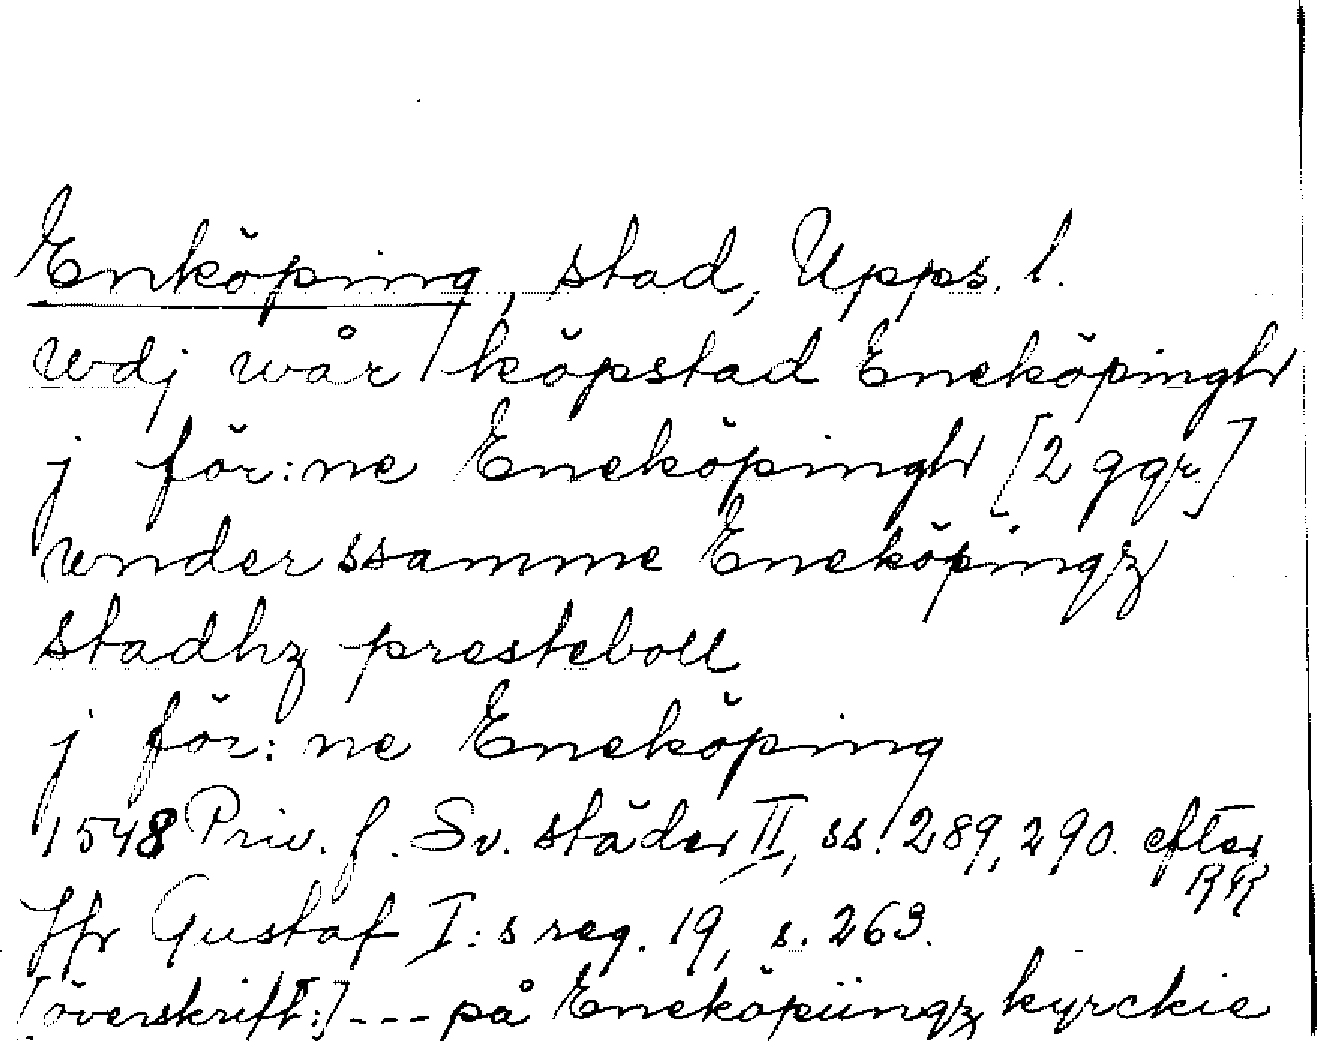 Enköping, stad, Upps. l.
wdj wår köpstad Eneköpingh
j för:ne Eneköpingh [2 ggr.]
wnder ssamme Eneköpingz
stadhz presteboll
j för:ne Eneköping
1548 Priv. f. Sv. städer II, ss. 289, 290. efter RR
Jfr Gustaf I:s reg. 19, s. 263.
[överskrift:] --- på Eneköpiingz kyrckie